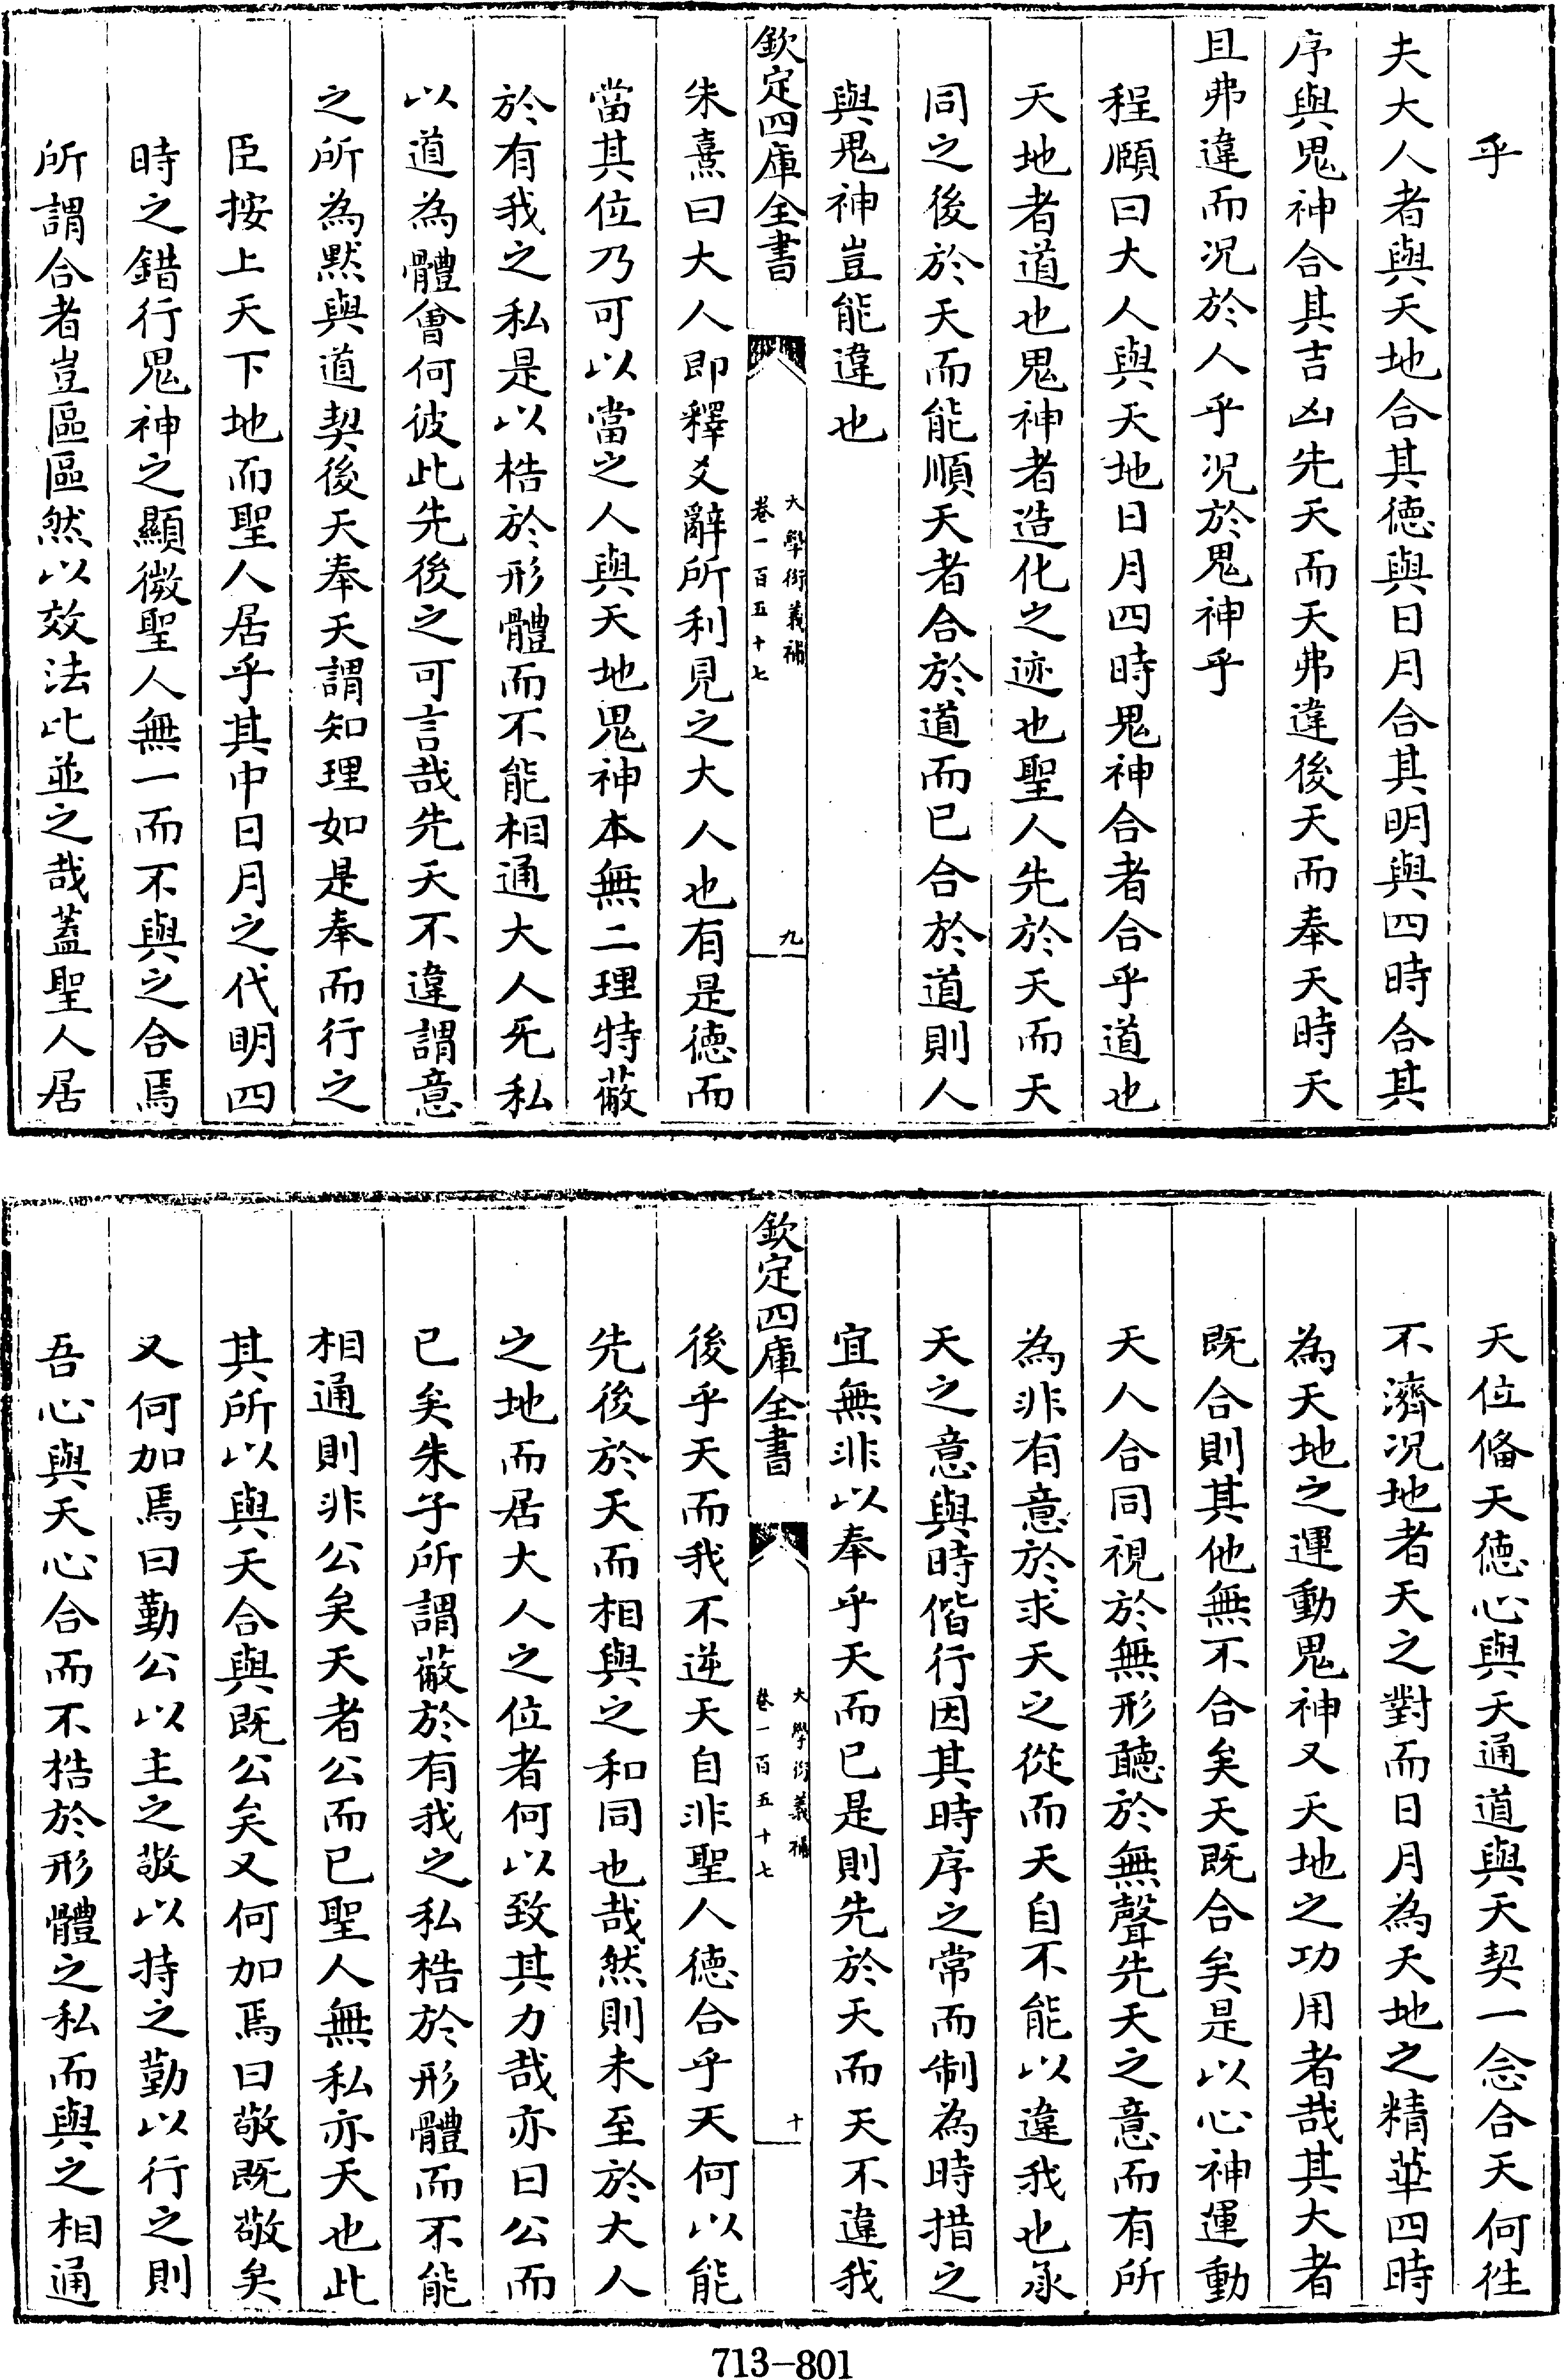 乎
夫大人者與天地合其徳與日月合其明與四時合其
序與鬼神合其吉凶先天而天弗違後天而奉天時天
且弗違而况於人乎况於鬼神乎
程頤曰大人與天地日月四時鬼神合者合乎道也
天地者道也鬼神者造化之迹也聖人先於天而天
同之後於天而能順天者合於道而已合於道則人
與鬼神豈能違也
欽定四庫全書
大學衍義補
卷一百五十七
九
朱熹曰大人即釋爻辭所利見之大人也有是徳而
當其位乃可以當之人與天地鬼神本無二理特蔽
於有我之私是以梏於形體而不能相通大人无私
以道為體曾何彼此先後之可言哉先天不違謂意
之所為黙與道契後天奉天謂知理如是奉而行之
臣按上天下地而聖人居乎其中日月之代明四
時之錯行鬼神之顯微聖人無一而不與之合焉
所謂合者豈區區然以效法比並之哉蓋聖人居
天位偹天徳心與天通道與天契一念合天何徃
不濟况地者天之對而日月為天地之精華四時
為天地之運動鬼神又天地之功用者哉其大者
既合則其他無不合矣天既合矣是以心神運動
天人合同視於無形聽於無聲先天之意而有所
為非有意於求天之從而天自不能以違我也承
天之意與時偕行因其時序之常而制為時措之
宜無非以奉乎天而已是則先於天而天不違我
欽定四庫全書
大學衍義補
卷一百五十七
十
後乎天而我不逆天自非聖人徳合乎天何以能
先後於天而相與之和同也哉然則未至於大人
之地而居大人之位者何以致其力哉亦曰公而
已矣朱子所謂蔽於有我之私梏於形體而不能
相通則非公矣天者公而已聖人無私亦天也此
其所以與天合與既公矣又何加焉曰敬既敬矣
又何加焉曰勤公以主之敬以持之勤以行之則
吾心與天心合而不梏於形體之私而與之相通
713-801